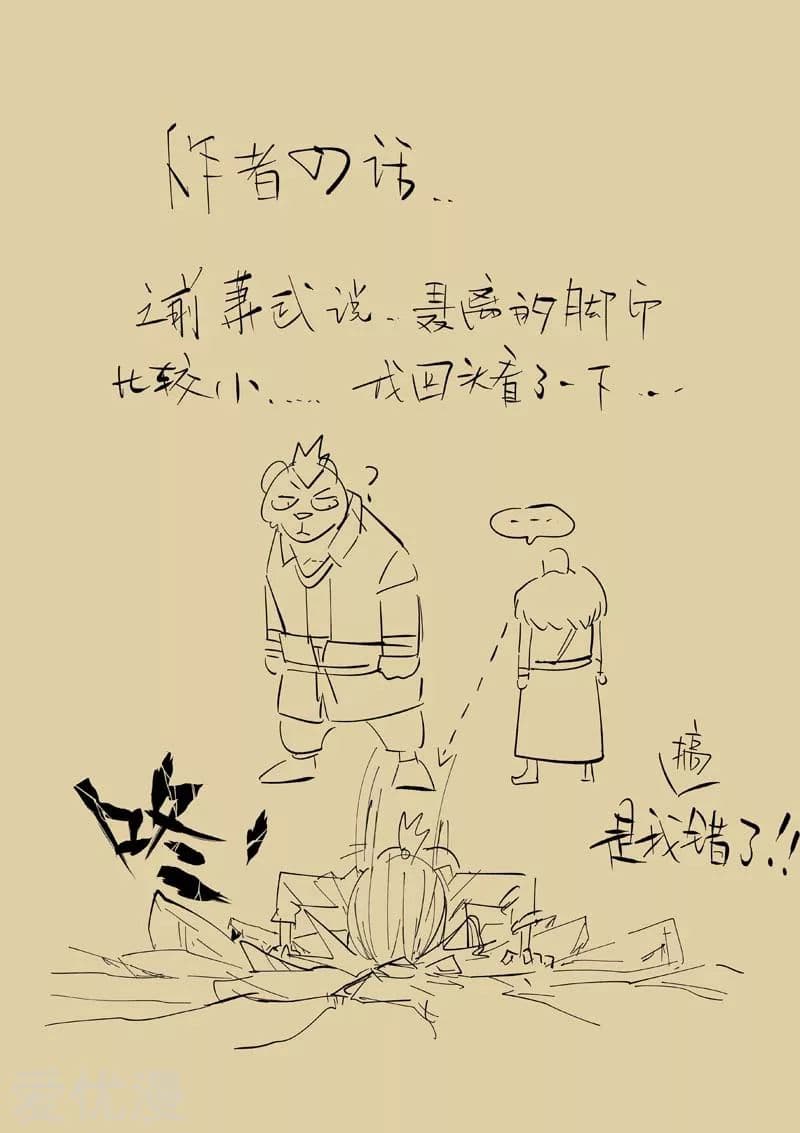 作者の话..
之前葺武说..聂离的脚印
比较小..... 我回头看了一下....
?
- - -
搞
是我错了!!
咚
爱优漫